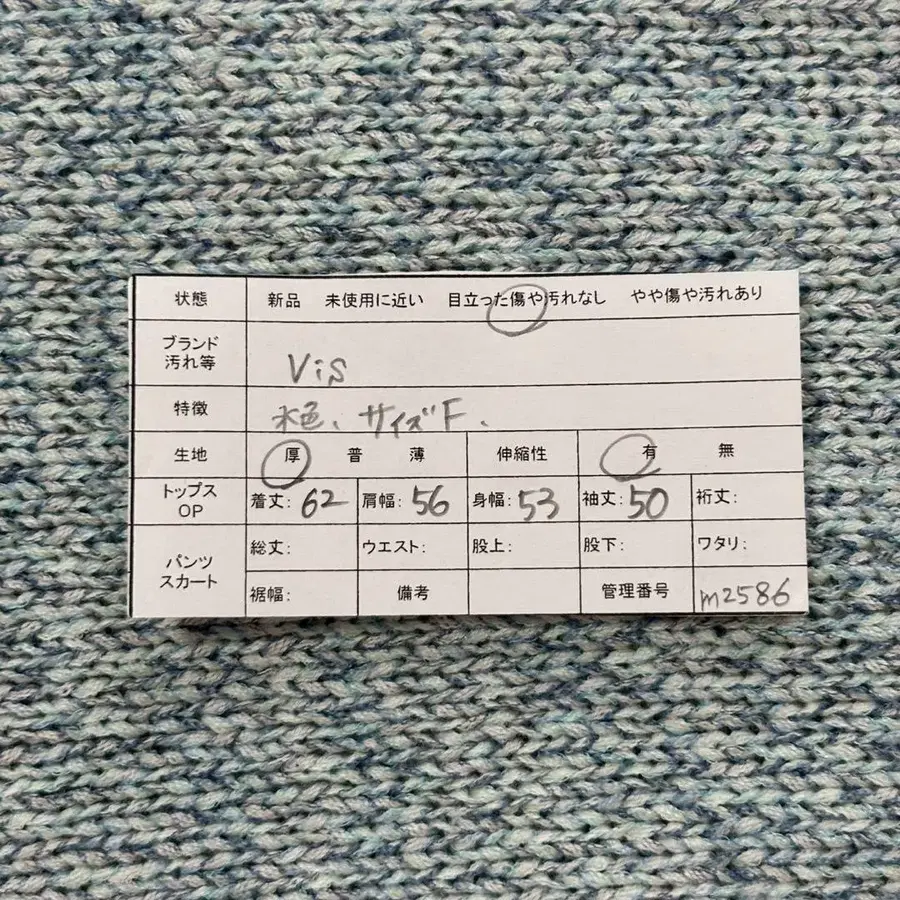 状態 新品 未使用に近い 目立った傷や汚れなし やや傷や汚れあり
ブランド
汚れ等 ViS
特徴 水色、サイズF、
生地 厚 普 薄 伸縮性 有 無
トップス
OP 着丈: 62 肩幅: 56 身幅: 53 袖丈: 50 裄丈:
パンツ
スカート 総丈: ウエスト: 股上: 股下: ワタリ:
裾幅: 備考 管理番号 m2586